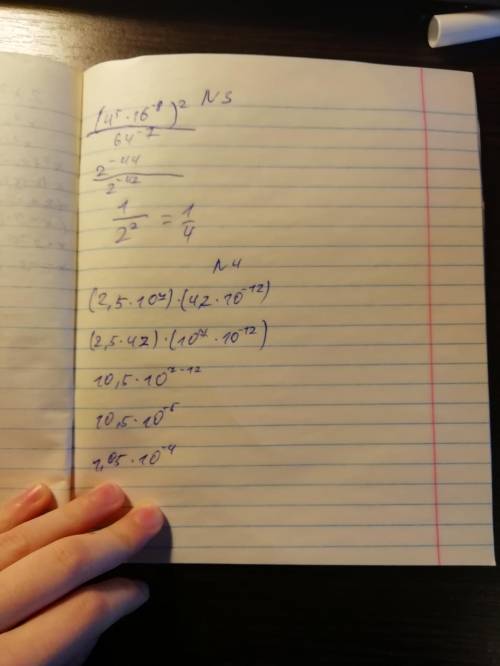 N3
(4⁵·16⁻⁸)²
64⁻⁷
2⁻⁴⁴
2⁻⁴²
1/2² = 1/4
N4
(2,5·10⁷)·(42·10⁻¹²)
(2,5·42)·(10⁷·10⁻¹²)
10,5·10⁷⁻¹²
10,5·10⁻⁵
1,05·10⁻⁴